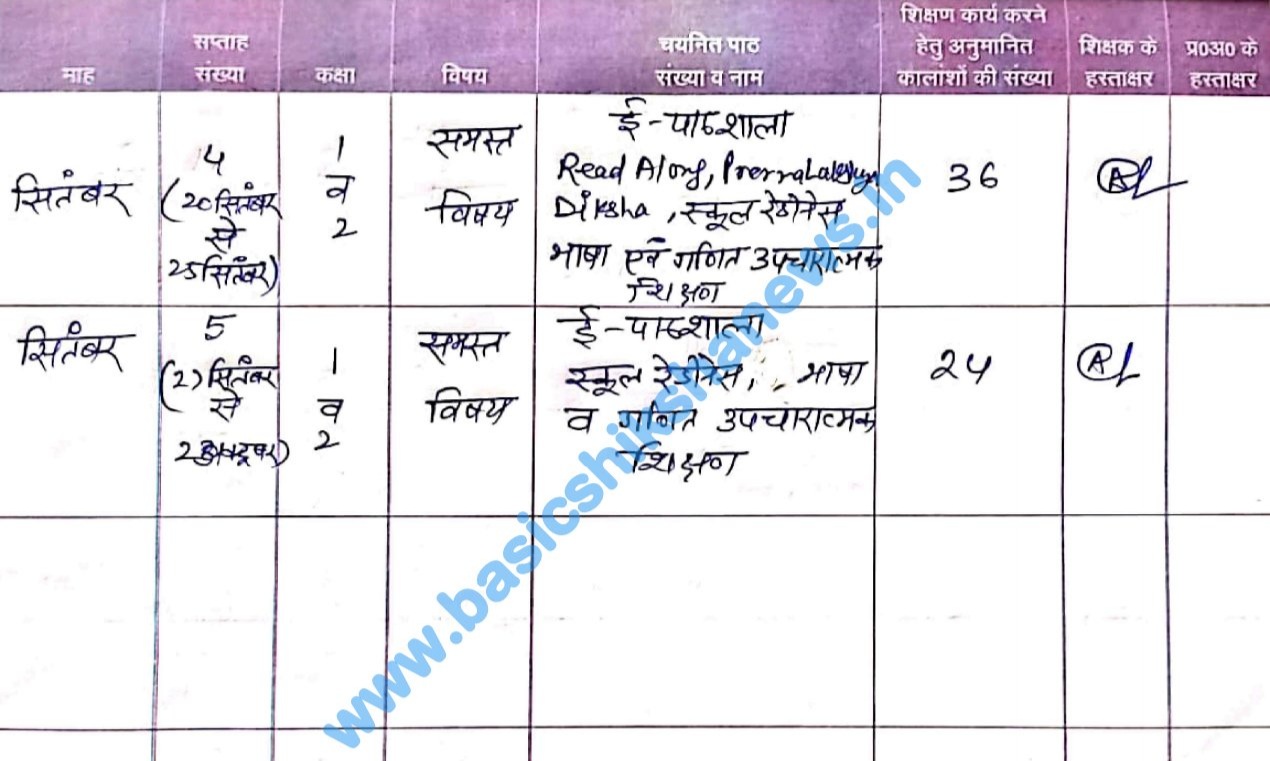 माह
सप्ताह
संख्या
कक्षा
विषय
चयनित पाठ
संख्या व नाम
शिक्षण कार्य करने
हेतु अनुमानित
कालांशों की संख्या
शिक्षक के
हस्ताक्षर
प्र०अ० के
हस्ताक्षर
सितंबर
4
(20 सितंबर
से
25 सितंबर)
1
व
2
समस्त
विषय
ई-पाठशाला
Read Along,
Diksha, स्कूल रेडीनेस
भाषा एवं गणित उपचारात्मक
शिक्षण
36
सितंबर
5
सितंबर
से
1
व
2
समस्त
विषय
ई-पाठशाला
स्कूल रेडीनेस, भाषा
व गणित उपचारात्मक
शिक्षण
24
www.basicshikshanews.in